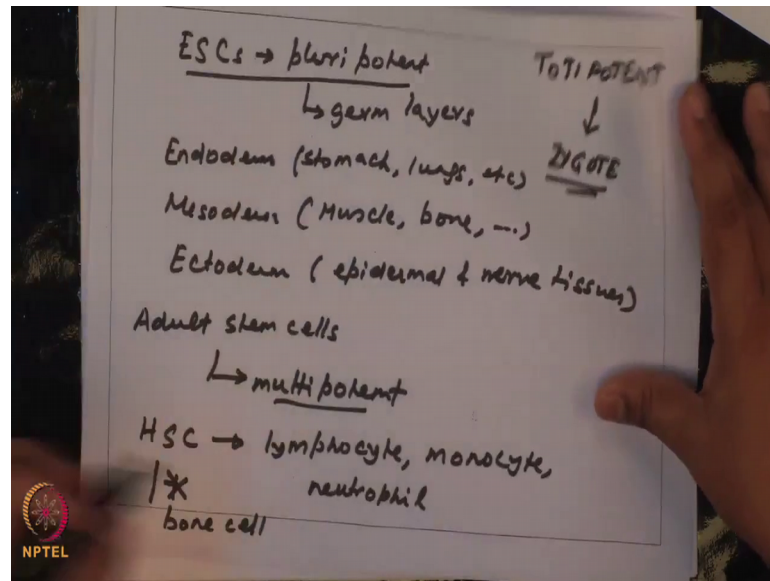 ESCs → pluripotent
TOTIPOTENT
↳ germ layers
↓
Endoderm (stomach, lungs, etc)
ZYGOTE
Mesoderm (Muscle, bone, ---.)
Ectoderm (epidermal & nerve tissues)
Adult stem cells
↳ multipotent
HSC → lymphocyte, monocyte,
neutrophil
bone cell
NPTEL